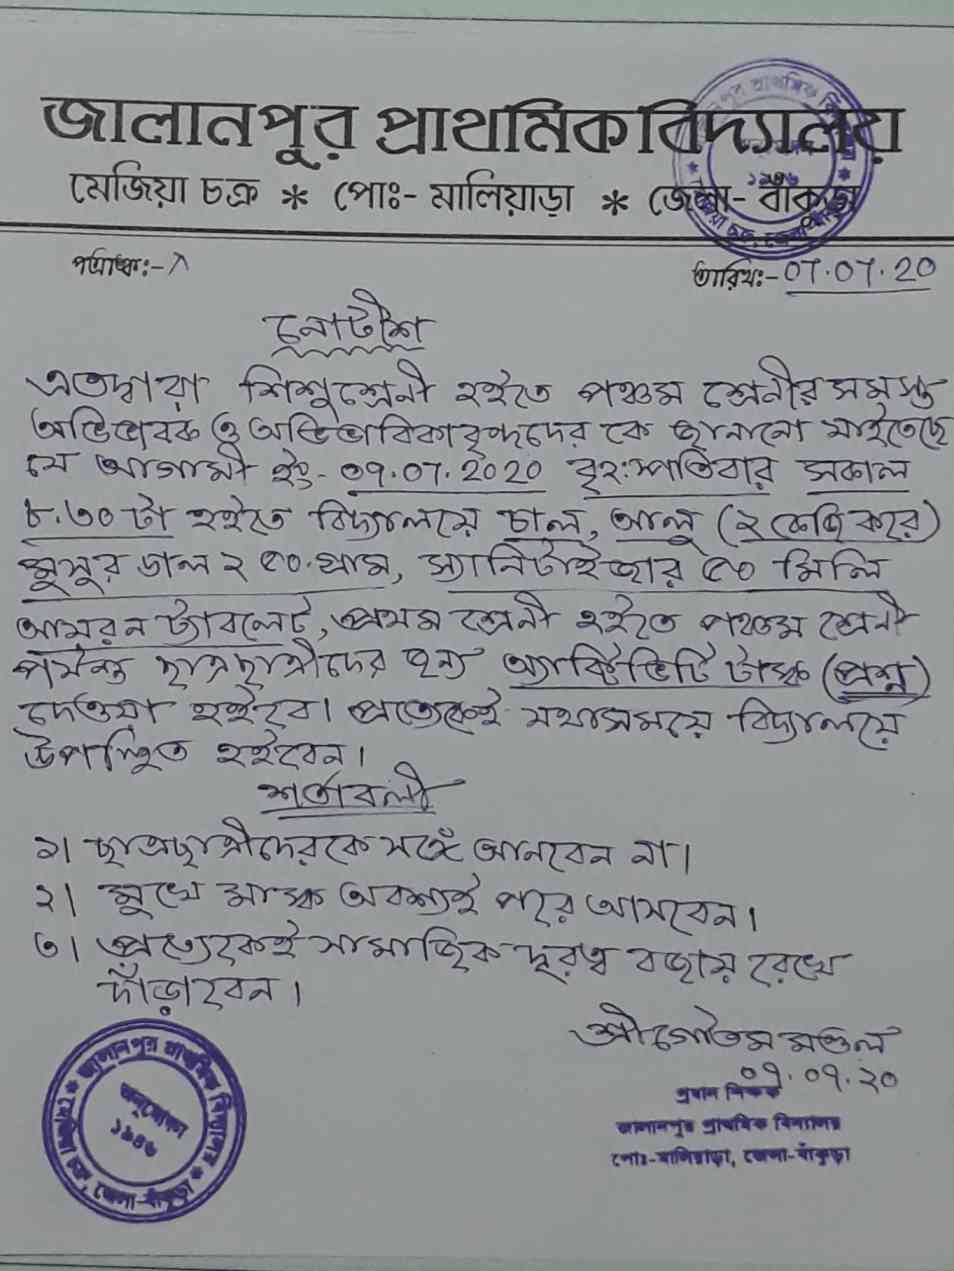 জালানপুর প্রাথমিক বিদ্যালয়
মেজিয়া চক্র * পোঃ- মালিয়াড়া * জেলা- বাঁকুড়া
পত্রাঙ্ক:-
তারিখ:- 07.07.20
নোটীশ
এতদ্বারা শিশুশ্রেনী হইতে পঞ্চম শ্রেনীর সমস্ত
অভিভাবক ও অভিভাবিকাবৃন্দদের কে জানানো যাইতেছে
যে আগামী ইং- ০৭.07.2020 বৃহঃস্পতিবার সকাল
৮.৩০ টা হইতে বিদ্যালয়ে চাল, আলু (২ কেজি করে)
মুসুর ডাল ২৫০.গ্রাম, স্যানিটাইজার ৫০ মিলি
আয়রন ট্যাবলেট, প্রথম শ্রেনী হইতে পঞ্চম শ্রেনী
পর্যন্ত ছাত্রছাত্রীদের জন্য অ্যাক্টিভিটি টাস্ক (প্রশ্ন)
দেওয়া হইবে। প্রত্যেকেই যথাসময়ে বিদ্যালয়ে
উপস্থিত হইবেন।
শর্তাবলী
১। ছাত্রছাত্রীদেরকে সঙ্গে আনবেন না।
২। মুখে মাস্ক অবশ্যই পরে আসবেন।
৩। প্রত্যেকেই সামাজিক দূরত্ব বজায় রেখে
দাঁড়াবেন।
শ্রীগৌতম মণ্ডল
০৭.০৭.২০
প্রধান শিক্ষক
জালানপুর প্রাথমিক বিদ্যালয়
পোঃ-মালিয়াড়া, জেলা-বাঁকুড়া
জালানপুর প্রাথমিক বিদ্যালয়
অনুমোদন
মেজিয়া চক্র, জেলা-বাঁকুড়া